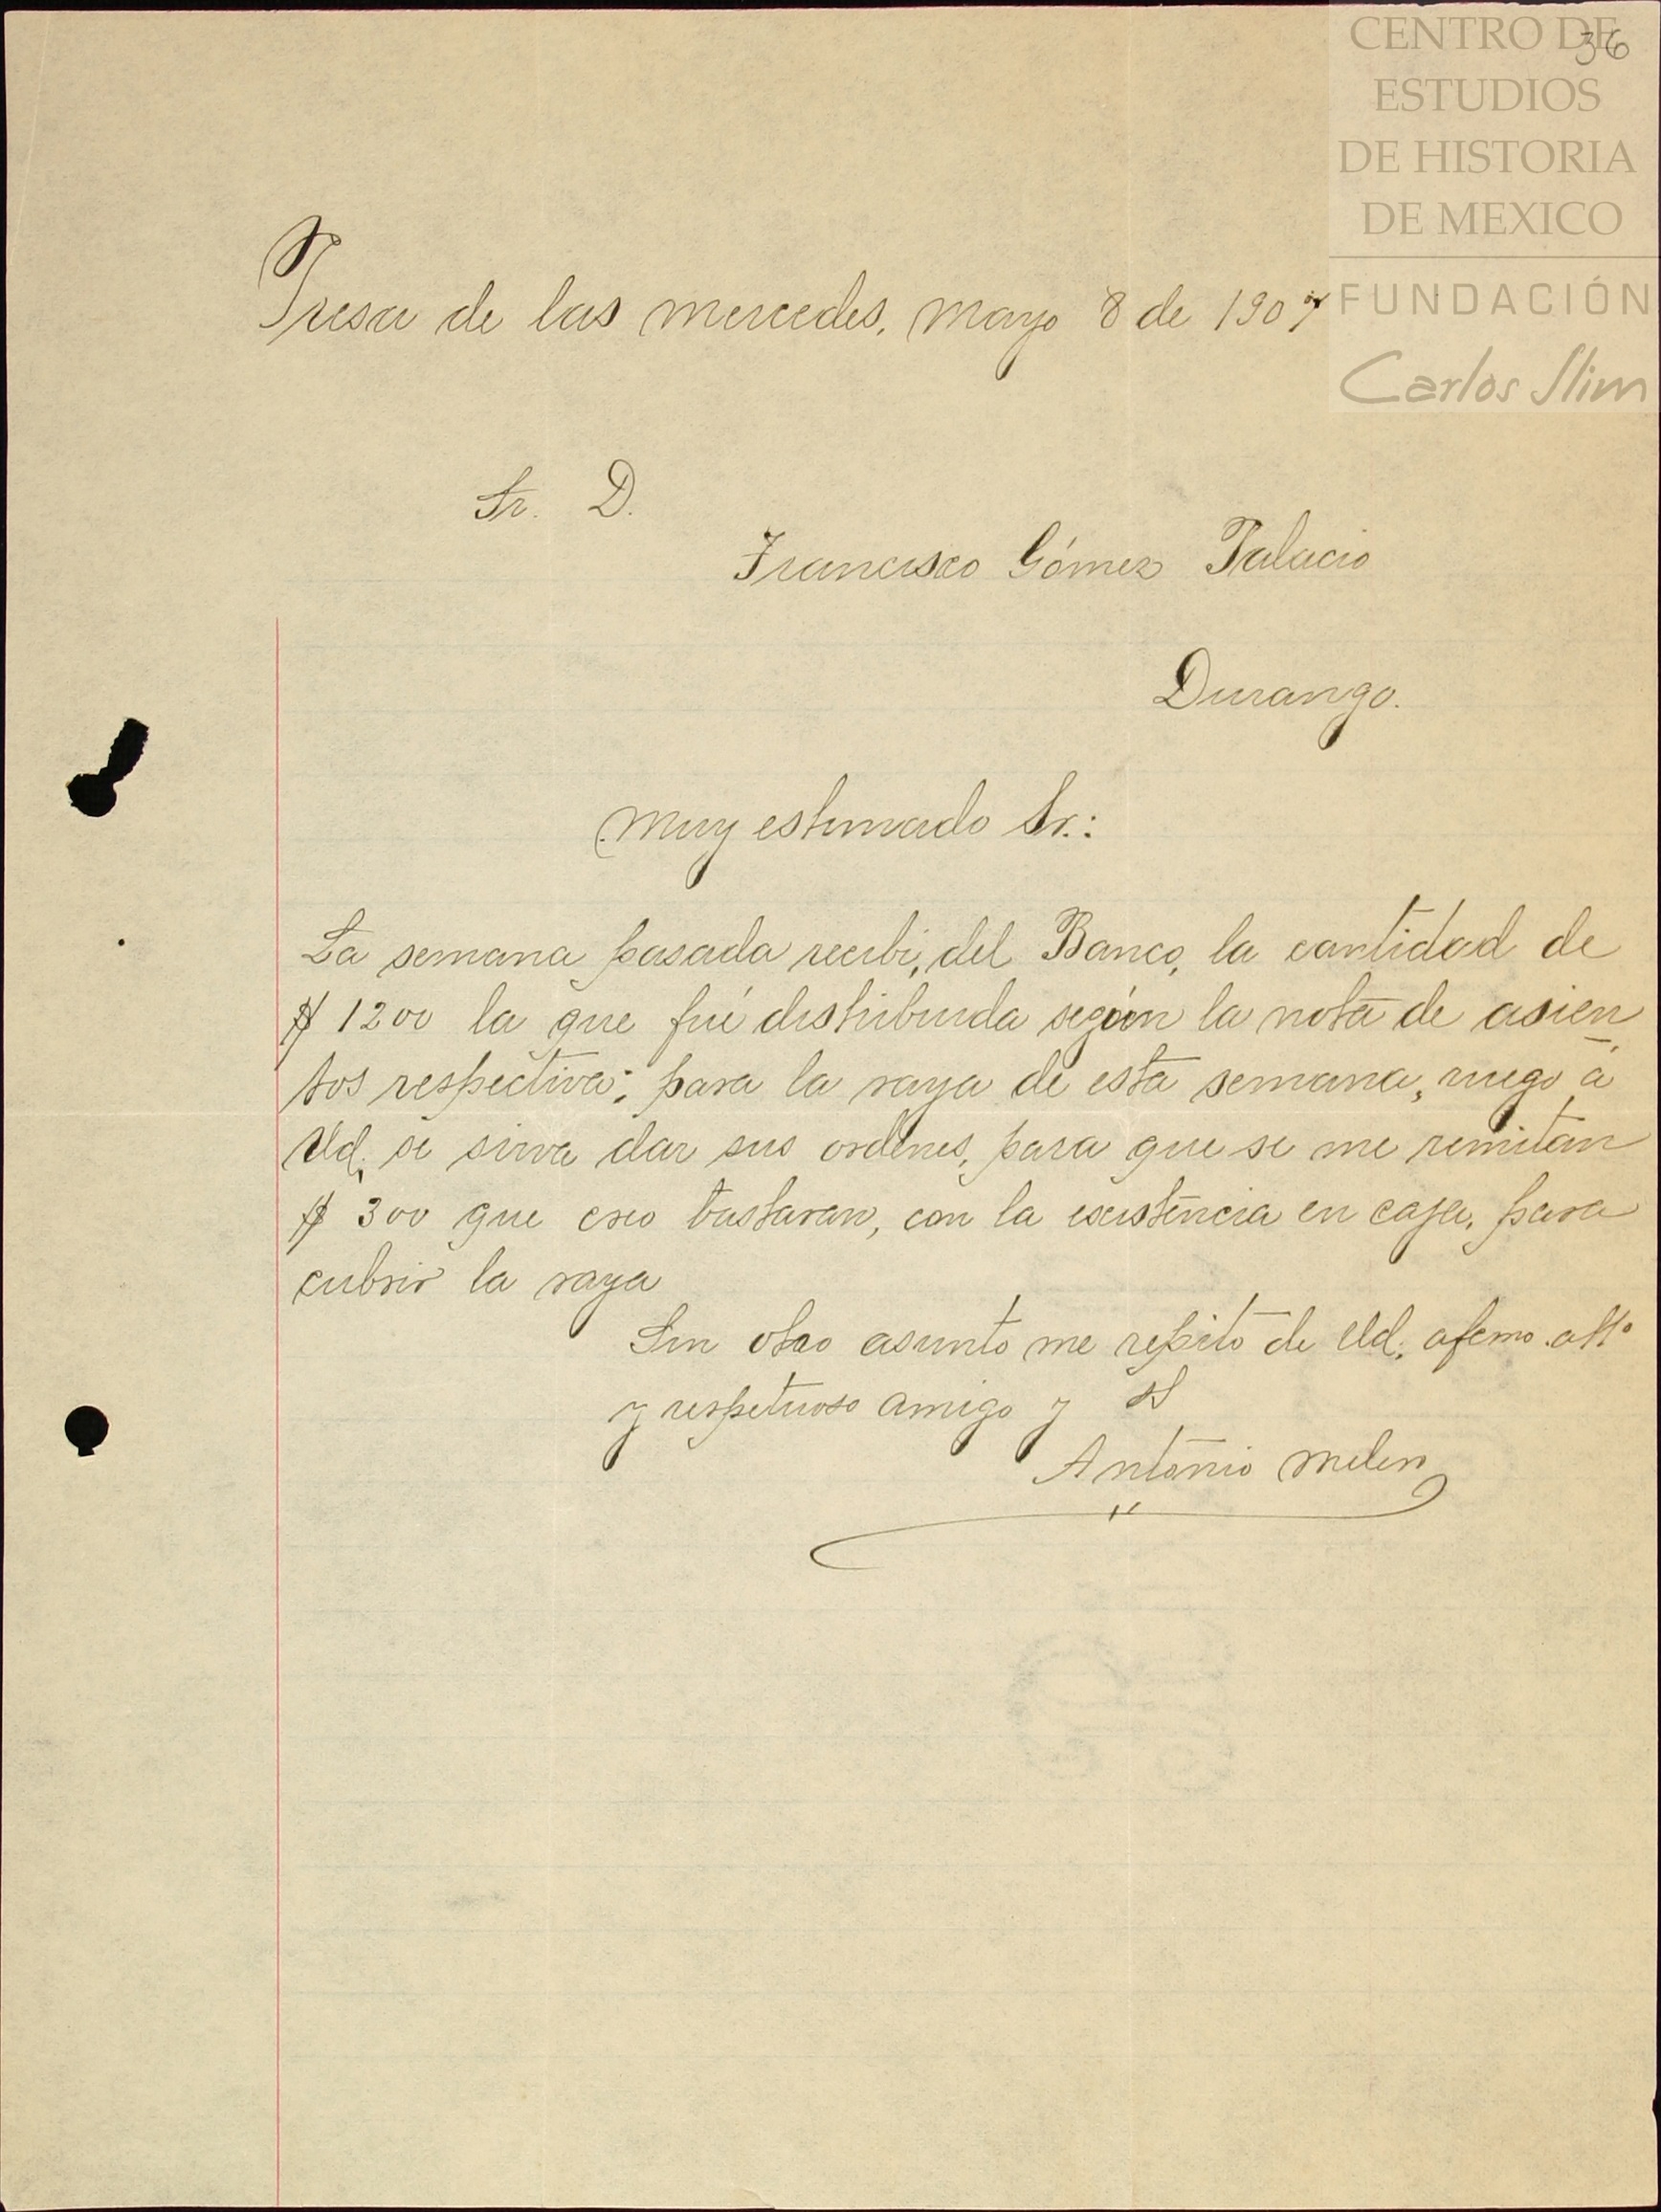 CENTRO DE
ESTUDIOS
DE HISTORIA
DE MEXICO
FUNDACIÓN
Carlos Slim
36
Presa de las mercedes, Mayo 8 de 1907
Sr. D.
Francisco Gómez Palacio
Durango.
Muy estimado Sr.:
La semana pasada recibi, del Banco, la cantidad de
$ 1200 la que fué distribuida según la nota de asien
tos respectiva; para la raya de esta semana, ruego á
Ud. se sirva dar sus ordenes, para que se me remitan
$ 300 que creo bastaran, con la existencia en caja, para
cubrir la raya
Sin otro asunto me repito de Ud. afcmo. atto
y respetuoso amigo y SS
Antonio Melen